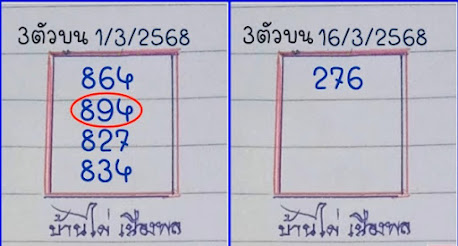 3ตัวบน 1/3/2568
864
894
827
834
บ้านไผ่ เมืองพล
3ตัวบน 16/3/2568
276
บ้านไผ่ เมืองพล